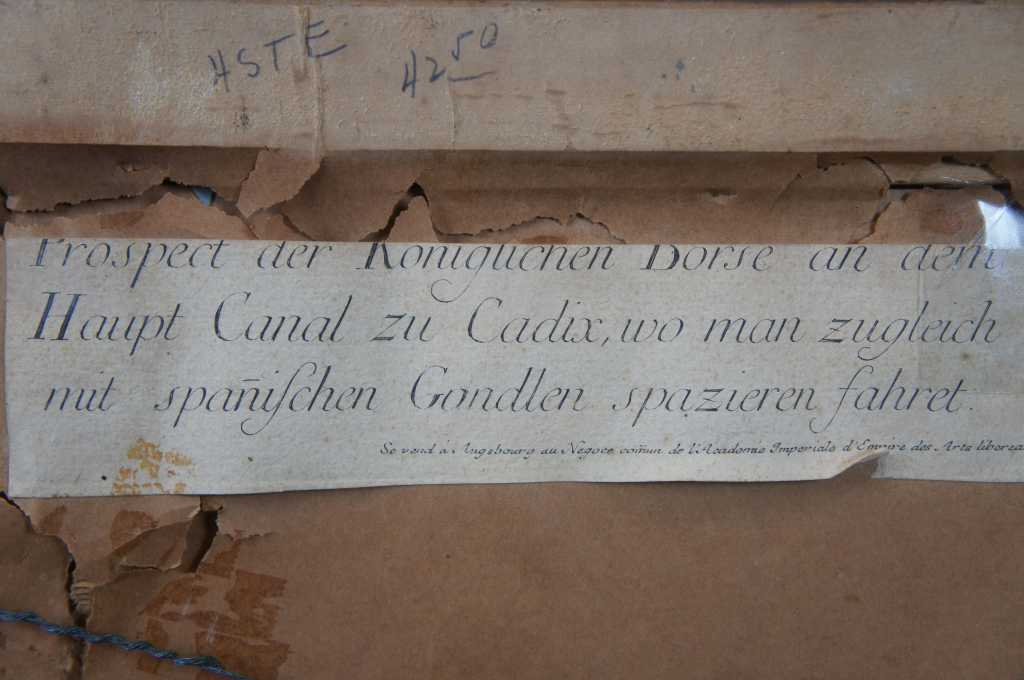 HSTE 42 50
Prospect der Königlichen Börse an dem
Haupt Canal zu Cadix, wo man zugleich
mit span̄iſchen Gondlen spazieren fahret.
Se vend à Augsbourg au Negoce com̄un de l'Academie Imperiale d'Empire des Arts liberea